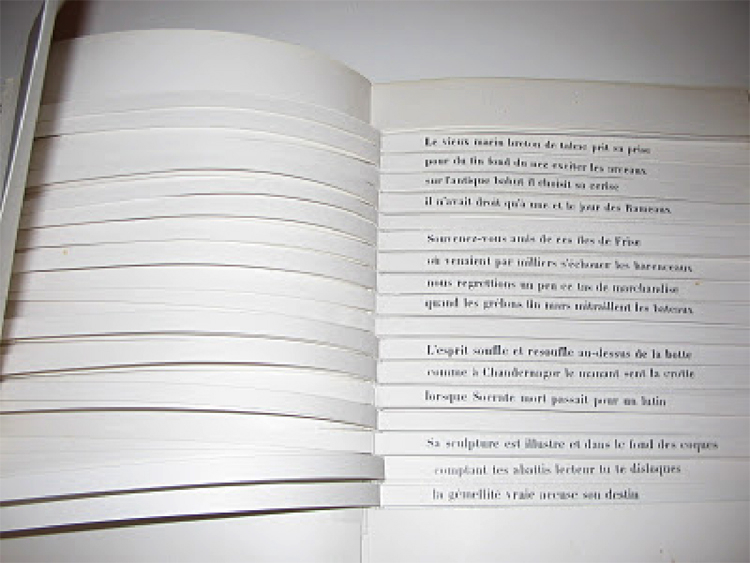 Le vieux marin breton de tabac prit sa prise
pour du fin fond du nez exciter les arceaux
sur l'antique bahut il choisit sa cerise
il n'avait droit qu'à une et le jour des Rameaux
Souvenez-vous amis de ces îles de Frise
où venaient par milliers s'échouer les harenceaux
nous regrettions un peu ce tas de marchandise
quand les grêlons fin mars mitraillent les bateaux
L'esprit souffle et resouffle au-dessus de la botte
comme à Chandernagor le manant sent la crotte
lorsque Socrate mort passait pour un lutin
Sa sculpture est illustre et dans le fond des coques
comptant tes abattis lecteur tu te disloques
la gémellité vraie accuse son destin